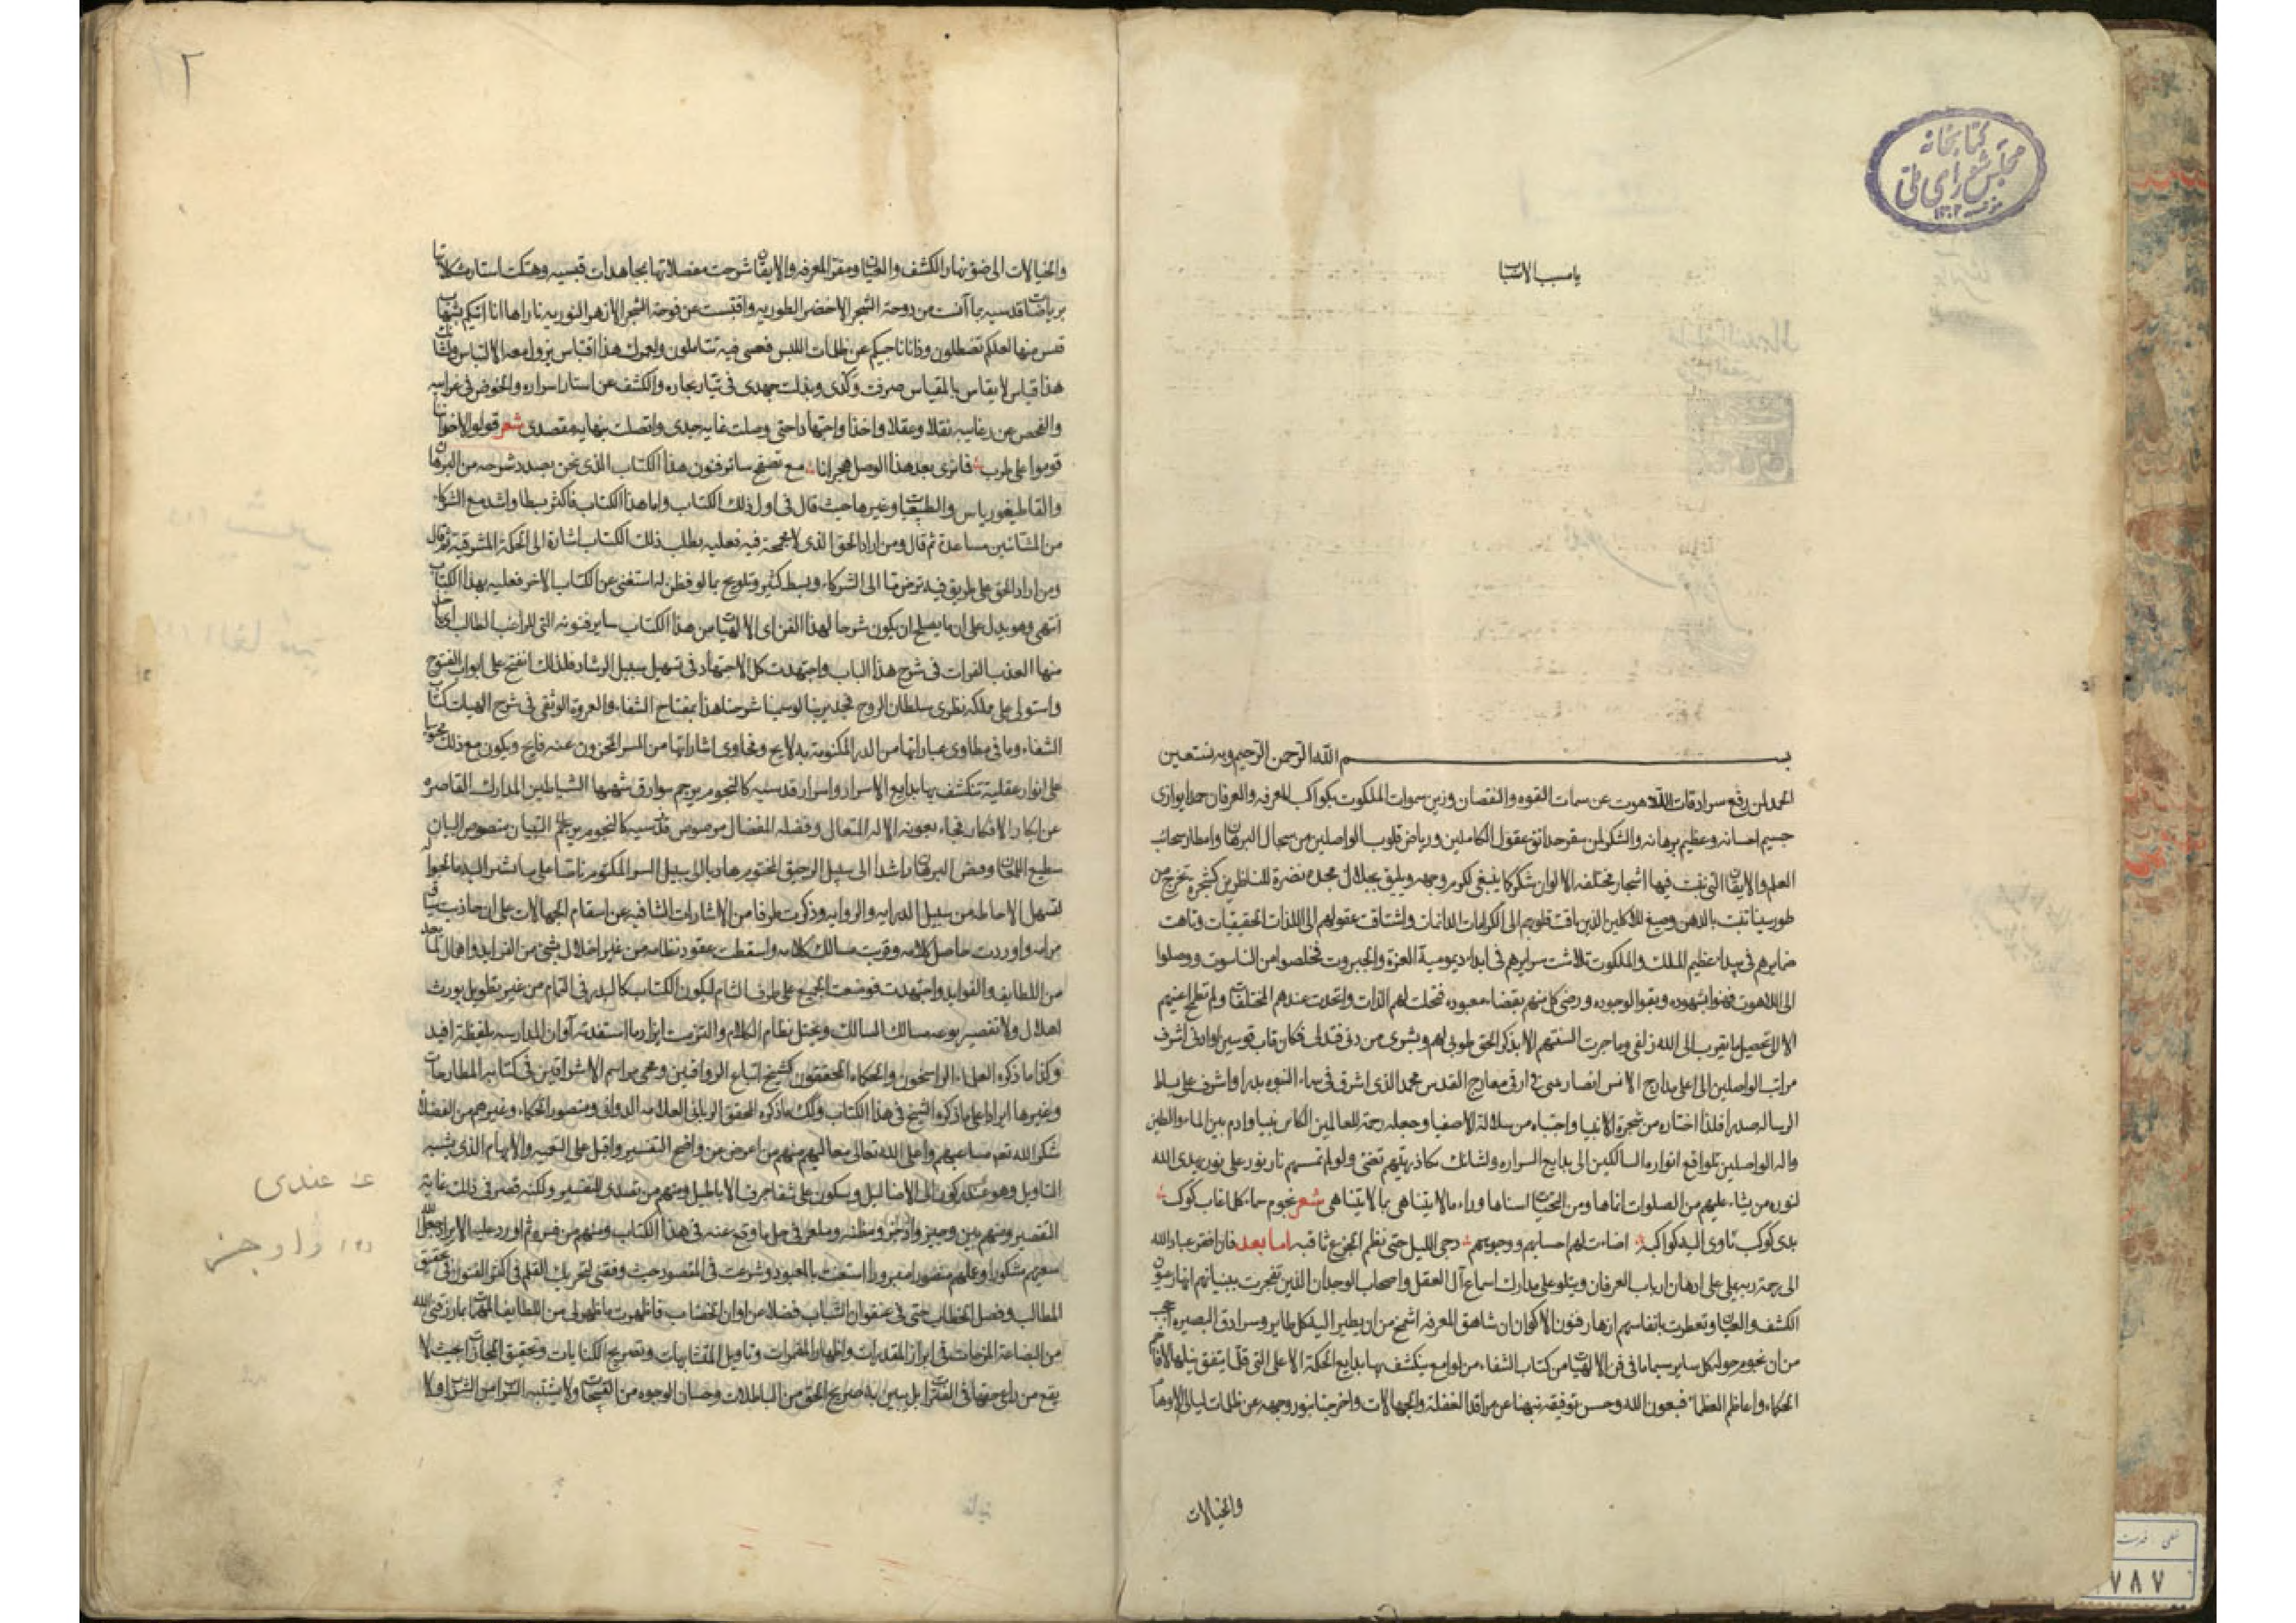 كتابخانه
مجلس شورای ملی
١٣٠٢
يا مسبب الاسباب
بسم الله الرحمن الرحيم وبه نستعين
الحمد لمن رفع سرادقات اللاهوت عن سمات القوه والنقصان وزين سموات الملكوت بكواكب المعرفه والعرفان حمدا يوازى
جسيم احسانه وعظيم برهانه والشكر لمن سقر حدائق عقول الكاملين ورياض قلوب الواصلين من سجال البرهان وامطار سحائب
العلم والايقان التى نبتت فيها اشجار مختلفه الالوان شكرا كما ينبغى لكرم وجهه ويليق بجلال مجده نضرة للناظرين كشجرة تخرج من
طور سينا تنبت بالدهن وصبغ للاكلين الذين تاقت قلوبهم الى الكرامات الدائمات واشتاقت عقولهم الى اللذات الحقيقيات وتاهت
ضمايرهم فى بيداء عظيم الملك والملكوت وتلاشت سرايرهم فى ابداء ديمومية العزة والجبروت فخلصوا من الناسوت ووصلوا
الى اللاهوت فهنوا بشهوده وبقوا لوجوده ورضى كل منهم بقضاء معبوده فتجلت لهم الذات واتحدت عندهم المختلفات ولم تطمح اعينهم
الا الى تحصيل ما يقرب الى الله زلفى وما جرت السنتهم الا بذكر الحق طوبى لهم وبشرى من دنى فتدلى فكان قاب قوسين او ادنى اشرف
مراتب الواصلين الى اعلى مدارج الانس انصار من ارقى معارج القدس محمد الذى اشرق فى سماء النبوه بدرا واشرف على بساط
الرساله صدرا فلذا اختاره من شجرة الانبيا واجتباه من سلالة الاصفيا وجعله رحمة للعالمين الكاس نبيا وادم بين الماء والطين
واله الواصلين بلوامع انواره السالكين الى بدايع اسراره ولشانك يكاد زيتهم تضئ ولو لم تمسسهم نار نور على نور يهدى الله
لنوره من يشاء عليهم من الصلوات اناها ومن التحيات اسناها وراء ما لا يتناهى بما لا يتناهى شعر نجوم سماء كلما غاب كوكب
بدى كوكب تأوى اليه كواكبه اضاءت لهم احسابهم ووجوههم دجى الليل حتى نظم الجزع ثاقبه اما بعد فان افقر عباد الله
الى رحمة ربه على على اذهان ارباب العرفان ويتلو على مدارك اسماع آل العقل واصحاب الوجدان الذين تفجرت ببنيانهم انهار عيون
الكشف والعيان وتعطرت بانفاسهم ازهار فنون الاكوان ان شاهق المعرفه اشمخ من ان يطير اليه كل طاير وسرادق البصيره احجب
من ان يحوم حوله كل ساير سيما ما فى فن الالهيات من كتاب الشفاء من لوامع ينكشف بها بدايع الحكمة الاعلى التى قلما يتفق نيلها الاقام
الحكماء واعاظم العظماء فبعون الله وحسن توفيقه نبهنا عن مراقد الغفلة والجهالات واخرجنا بنور وجهه عن ظلمات ليالى الاوهام
والخيالات
٢
والخيالات الى ضوء نهار الكشف والعيان ومقر المعرفه والايقان شرحت معضلاتها بمجاهدات قبسيه وهتكت استار مشكلاتها
برياضات قدسيه بما آنست من دوحة الشجر الاخضر الطوريه واقتبست عن فوحة الشجر الازهر النوريه نارا ها انا اتيكم بشهاب
قبس منها لعلكم تصطلون وذا انا ناجيكم عن ظلمات اللبس فعسى فيه تتاملون ولعمرك هذا اقتباس يزول معه الالتباس وشان
هذا قياس لا يقاس بالمقياس صرفت وكدى وبذلت جهدى فى تيار بحاره والكشف عن استار اسراره والخوض فى غرايبه
والفحص عن رغايبه نقلا وعقلا واخذا واجتهادا حتى وصلت غايه جيدى واتصلت بنهايه مقصدى شعر قولوا لاخواننا
قوموا على طرب فلا نرى بعد هذا الوصل هجرانا مع تصفح سائر فنون هذا الكتاب الذى نحن بصدد شرحه من البرهان
والقاطيغورياس والطبيعيات وغيرها حيث قال فى اول ذلك الكتاب واما هذا الكتاب فاكثر بسطا واشد مع الشركاء
من المشائين مساعدة ثم قال ومن اراد الحق الذى لا مجمجة فيه فعليه بطلب ذلك الكتاب اشارة الى الحكمة المشرقيه ثم قال
ومن اراد الحق على طريق فيه ترض ما الى الشركاء وبسط كثير وتلويح بما لو فطن له استغنى عن الكتاب الاخر فعليه بهذا الكتاب
انتهى وهو يدل على ان ما يصلح ان يكون شرحا لهذا الفن اى الالهيات من هذا الكتاب ساير فنونه التى للراغب الطالب
منها العذب الفرات فى شرح هذا الباب واجتهدت كل الاجتهاد فى تسهيل سبيل الرشاد فلذلك انفتح على ابواب الفتوح
واستولى على ملكه نظرى سلطان الروح فجدير بنا لو سمينا شرحنا هذا بمفتاح الشفاء والعروة الوثقى فى شرح الهيات كتاب
الشفاء وما فى مطاوى عباراتها من الدر المكنونة به لايح وفحاوى اشاراتها من السر المخزون عنه فايح ويكون مع ذلك محتويا
على انوار عقلية تنكشف بها بدايع الاسرار واسرار قدسيه كالنجوم يرجم بوارق شهبها الشياطين المدارك القاصره
عن ابكار الافكار فجاء بعونه الاله المتعال وفضله المفضال
لتسهل الاحاطه من سبيل الدرايه والروايه وذكرت طرفا من الاشارات الشافيه عن اسقام الجهالات على ان جاذبت
مرامه واوردت حاصل كلامه وقربت مسالك كلامه واسقطت عقود نظامه من غير اخلال بشئ من الفرايد واهمال
من اللطايف والفوايد واجتهدت فوضعت الجميع على طرف الثمام ليكون الكتاب كالبدر فى التمام من غير تطويل يورث
املال ولا تقصير يوعر مسالك السالك ويختل نظام الكلام والتزمت ايراد ما استفدته آوان المدارسه
وكذا ما ذكره العلماء الراسخون والحكماء المحققون كشيخ اتباع الرواقيين ومحيى مراسم الاشراقيين فى كتابه المطارحات
وغيرها ايرادا على ما ذكره الشيخ فى هذا الكتاب وكذلك ما ذكره المحقق الربانى العلامه الدوانى ومنصور الحكماء وغيرهم من الفضلاء
شكر الله تعالى مساعيهم واعلى الله تعالى معاليهم منهم من اعرض من واضح التفسير واقبل على التعميه والابهام الذى يشبه
التاويل ومنهم من تصدى للتفسير ولكنه قصر فى ذلك غاية
التقصير ومنهم بين وجيز واوجز فى حل ما وقع عنه فى هذا الكتاب ومنهم من فسر ثم اورد عليه الايراد جعل الله
سعيهم مشكورا وعلمهم منصورا استعنت بالمعبود وشرعت فى المقصود حيث وفقنى لتحريك القلم فى اكثر الفنون فى تحقيق
المطالب وفصل الخطاب حتى فى عنفوان الشباب فضلا عن اوان الخضاب فاظهرت ما ظهر لى من اللطايف بما رزقنى الله
من البضاعة المزجات فى ابراز المقدرات واظهار المضمرات وتاويل المتشابهات وتصريح الكنايات وتحقيق المجازات بحيث لا
يقع من راجعها فى الفترات بل يبين به صريح الحق من الباطلات وحسان الوجوه من القبيحات ولا يشتبه السراب من الشراب ولا
عندى
واوجز
٧٨٧